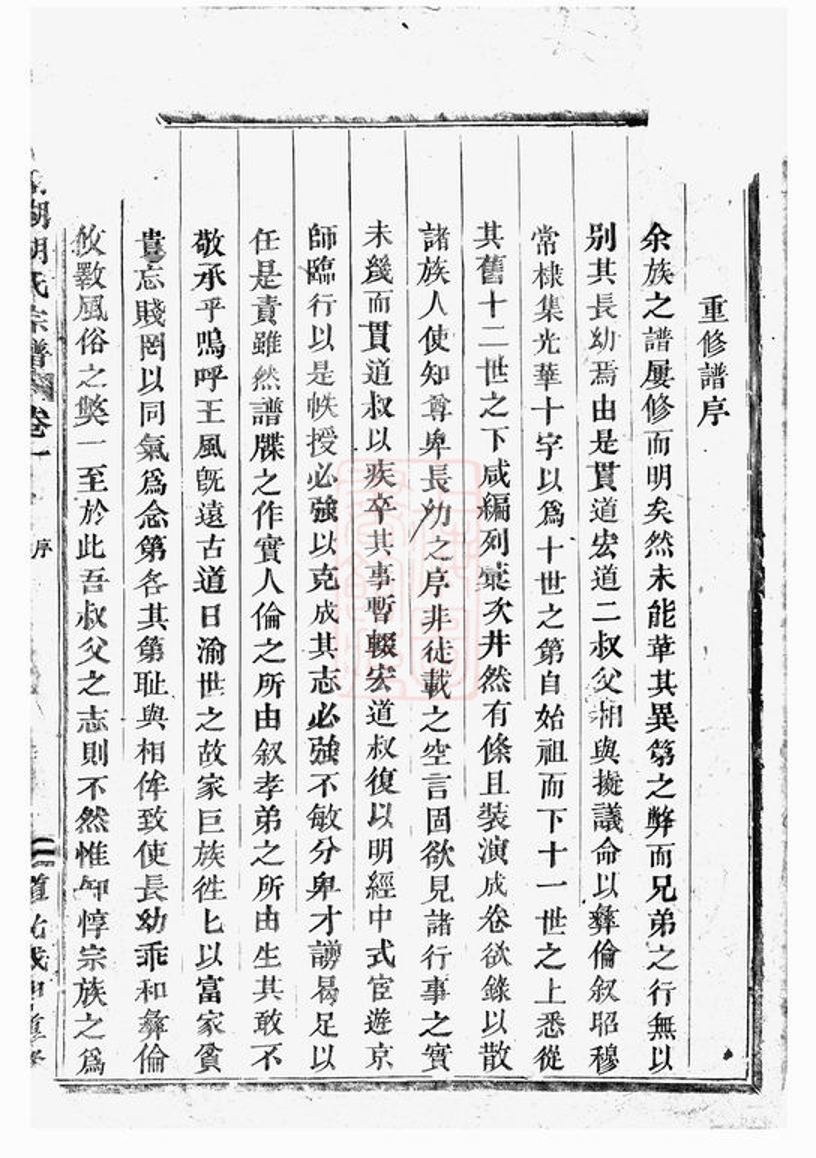 重修譜序
余族之譜屢修而明矣然未能革其異第之弊而兄弟之行無以
別其長幼焉由是貫道宏道二叔父相與擬議命以彝倫叙昭穆
常棣集光華十字以爲十世之第自始祖而下十一世之上悉從
其舊十二世之下咸編列葉次井然有條且装演成卷欲錄以散
諸族人使知尊卑長幼之序非徒載之空言固欲見諸行事之實
未幾而貫道叔以疾卒其事暫輟宏道叔復以明經中式宦遊京
師臨行以是帙授必強以克成其志必強不敏分卑才譾曷足以
任是責雖然譜牒之作實人倫之所由叙孝弟之所由生其敢不
敬承乎嗚呼王風旣遠古道日渝世之故家巨族徃匕以富家貧
貴忘賤罔以同氣爲念第各其第耻與相侔致使長幼乖和彝倫
攸斁風俗之獘一至於此吾叔父之志則不然惟知惇宗族之爲
湖胡氏宗譜 卷一 序 二 道光戊申重修